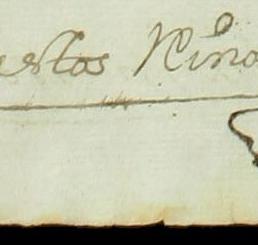 estos Nino